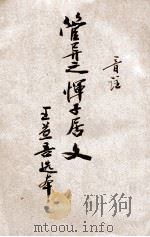 音注
管异之惲子居文
王益吾选本
www.artfox.com